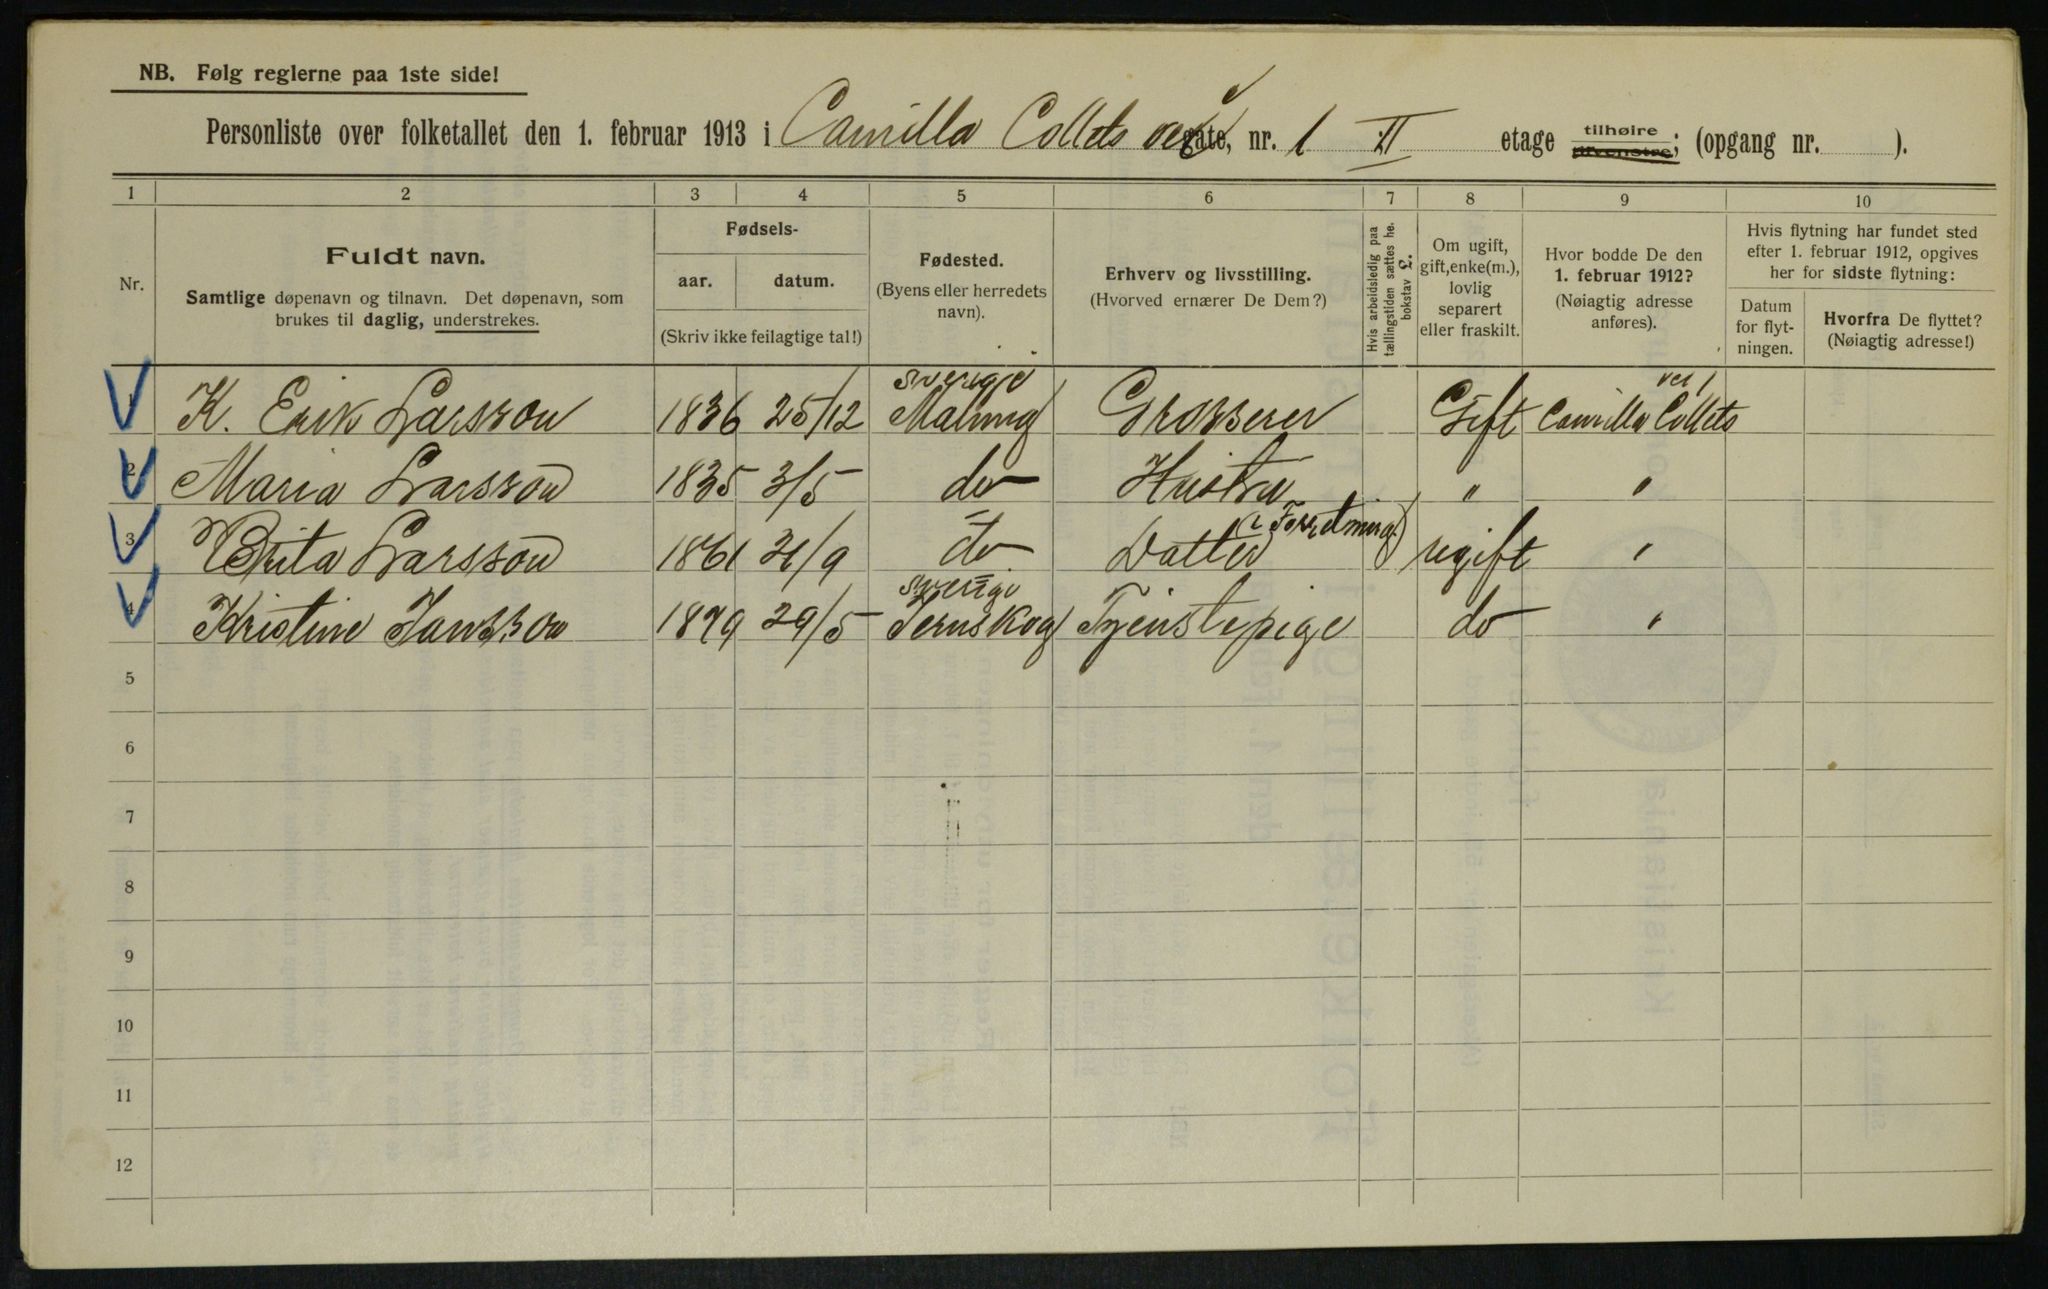 NB. Følg reglerne paa 1ste side!
Personliste over folketallet den 1. februar 1913 i Camilla Collets vei gate, nr. 1 II etage tilhøire tilvenstre; (opgang nr. ).
1 2 3 4 5 6 7 8 9 10
Nr.
Fuldt navn.
Samtlige døpenavn og tilnavn. Det døpenavn, som
brukes til daglig, understrekes.
Fødsels-
aar. datum.
(Skriv ikke feilagtige tal!)
Fødested.
(Byens eller herredets
navn).
Erhverv og livsstilling.
(Hvorved ernærer De Dem?)
Hvis arbeidsledig paa
tællingstiden sættes he.
bokstav L.
Om ugift,
gift, enke(m.),
lovlig
separert
eller fraskilt.
Hvor bodde De den
1. februar 1912?
(Nøiagtig adresse
anføres).
Hvis flytning har fundet sted
efter 1. februar 1912, opgives
her for sidste flytning:
Datum
for flyt-
ningen.
Hvorfra De flyttet?
(Nøiagtig adresse!)
Sverige vei 1
1 K. Erik Larsson 1836 25/12 Malung Grosserer Gift Camilla Collets
2 Maria Larsson 1835 3/5 do Hustru " "
(i Forretning)
3 Brita Larsson 1861 21/9 do Datter ugift "
Sverige
4 Kristine Jansson 1879 29/5 Jernskog Tjenstepige do "
5
6
7
8
9
10
11
12